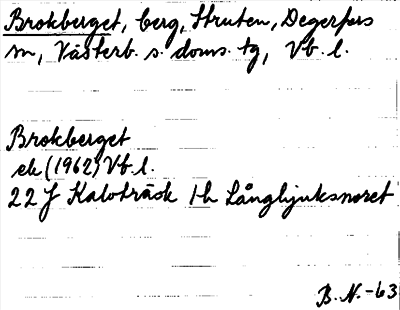 Brokberget, berg, Struten, Degerfors
sn, Västerb. s. doms. tg, Vb. l.
Brokberget
ek (1962) Vb. l.
22 J Kalvträsk 1h Långbjuksnoret
B. N. -63